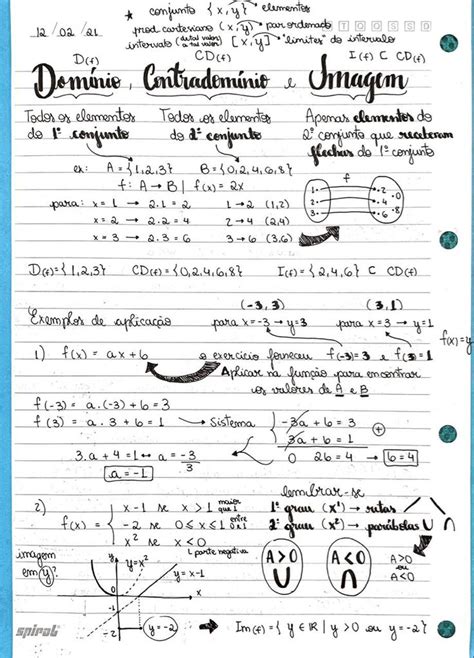 * conjunto {x, y} → elementos
12/02/21 prod. cartesiano (x, y) → par ordenado
T Q Q S S D
intervalo (de tal valor a tal valor) [x, y] → "limites" do intervalo
D(f) CD(f) I(f) ⊂ CD(f)
Domínio, Contradomínio e Imagem
Todos os elementos do 1º conjunto
Todos os elementos do 2º conjunto
Apenas elementos do 2º conjunto que receberam flechas do 1º conjunto
ex: A = {1,2,3} B = {0,2,4,6,8}
f: A → B | f(x) = 2x
para: x = 1 → 2.1 = 2 1→2 (1,2)
x = 2 → 2.2 = 4 2→4 (2,4)
x = 3 → 2.3 = 6 3→6 (3,6)
f
1 2
2 4 0
3 6 8
D(f)={1,2,3} CD(f)={0,2,4,6,8} I(f)={2,4,6} ⊂ CD(f)
(-3,3) (3,1)
Exemplos de aplicação para x=-3 → y=3 para x=3 → y=1
f(x)=y
1) f(x) = ax+b o exercício forneceu f(-3)=3 e f(3)=1
Aplicar na função para encontrar os valores de A e B
f(-3) = a.(-3) + b = 3
f(3) = a.3 + b = 1 → Sistema
-3a + b = 3
3a + b = 1 (+)
0 2b = 4 → b=4
3.a + 4 = 1 ↔ a = -3/3
a = -1
lembrar-se
2) f(x) = { x-1 se x > 1 maior que 1
-2 se 0 ≤ x ≤ 1 entre 0 e 1
x² se x < 0
↳ parte negativa
1º grau (x¹) → retas / \
2º grau (x²) → parábolas ∪ ∩
imagem em y?
y
y=x²
y = x-1
x
-1
-2
y=-2
A>0 ∪
A<0 ∩
A>0 ou A<0
Im(f) = { y ∈ IR | y > 0 ou y = -2 }
spiral